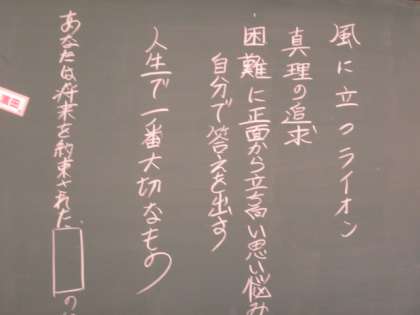 風に立つライオン
真理の追求
困難に正面から立向い思い悩み
自分で答えを出す
人生で一番大切なもの
あなたは将来を約束された の